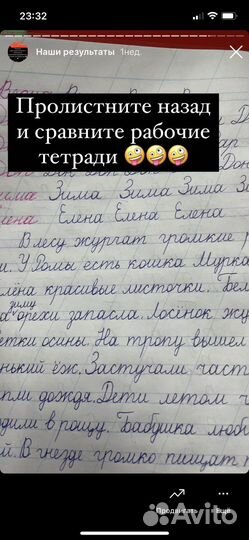 23:32
Наши результаты 1нед.
Пролистните назад
и сравните рабочие
тетради 🤪🤪🤪
Зима Зима Зима
Елена Елена Елена
В лесу журчат громкие
и. У Ромы есть кошка Мурка
лёна красивые листочки. Бел
зиму
а орехи запасла. Лосёнок жу
етки осины. На тропу вышел
нький ёж. Застучали част
пли дождя. Дети летом
дили в рощу. Бабушка люб
й. В гнезде громко пищат
Продвигать Ещё
Avito